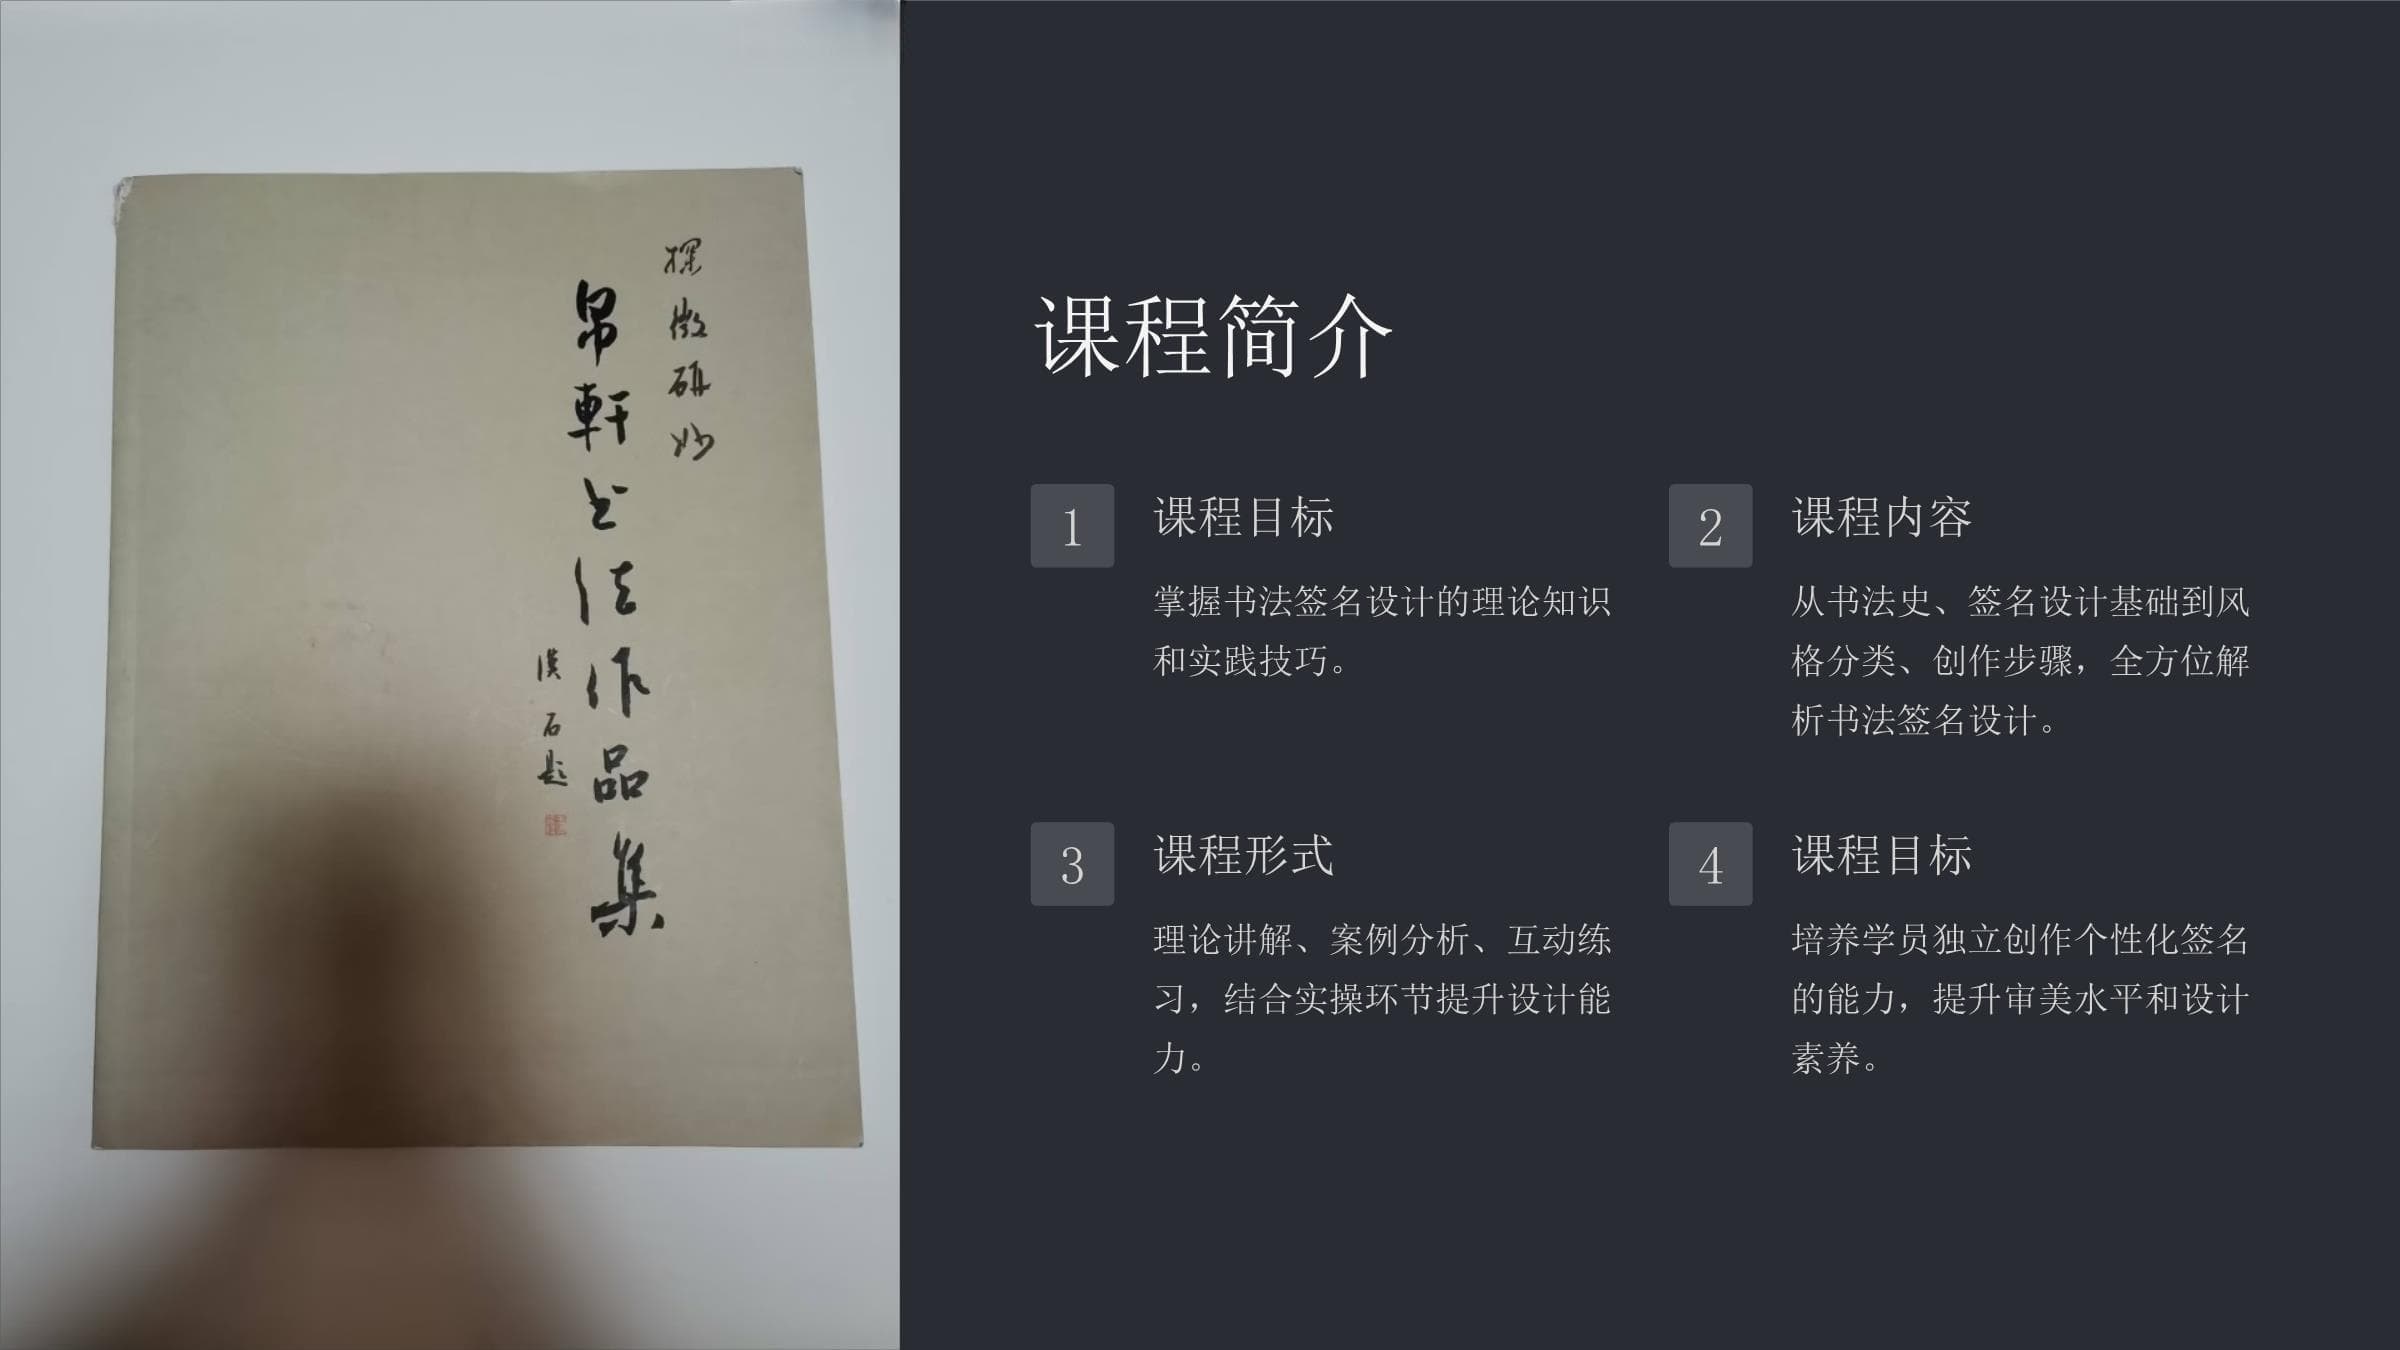 探微研妙
帛軒书法作品集
漢石题
课程简介
1
课程目标
掌握书法签名设计的理论知识
和实践技巧。
2
课程内容
从书法史、签名设计基础到风
格分类、创作步骤，全方位解
析书法签名设计。
3
课程形式
理论讲解、案例分析、互动练
习，结合实操环节提升设计能
力。
4
课程目标
培养学员独立创作个性化签名
的能力，提升审美水平和设计
素养。